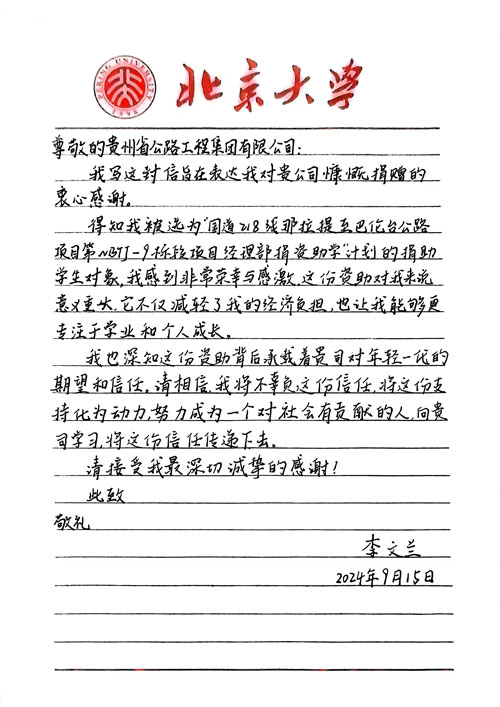 PEKING UNIVERSITY
1898
北京大学
尊敬的贵州省公路工程集团有限公司：
我写这封信旨在表达我对贵公司慷慨捐赠的
衷心感谢。
得知我被选为“国道218线那拉提至巴伦台公路
项目第NBTJ-9标段项目经理部捐资助学”计划的捐助
学生对象，我感到非常荣幸与感激，这份资助对我来说
意义重大，它不仅减轻了我的经济负担，也让我能够更
专注于学业和个人成长。
我也深知这份资助背后承载着贵司对年轻一代的
期望和信任。请相信，我将不辜负这份信任，将这份支
持化为动力，努力成为一个对社会有贡献的人，向贵
司学习，将这份信任传递下去。
请接受我最深切诚挚的感谢！
此致
敬礼
李文兰
2024年9月15日